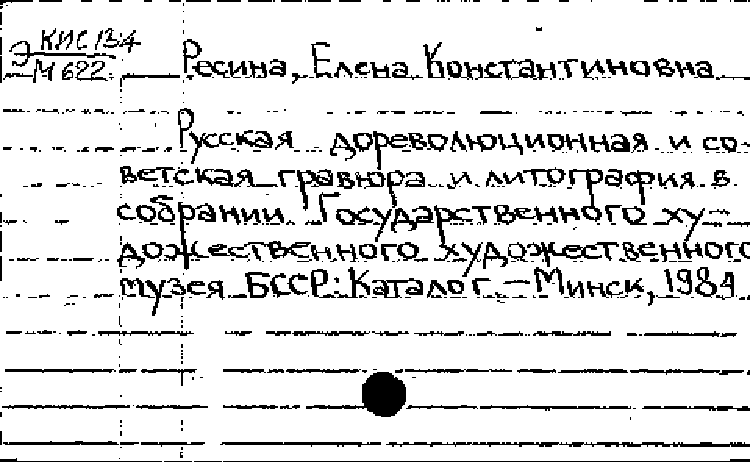 Э КПС 134
М 622
Ресина, Елена Константиновна
Русская дореволюционная и со-
ветская гравюра и литография в
собрании Государственного ху-
дожественного художественного
музея БССР: Каталог. – Минск, 1984